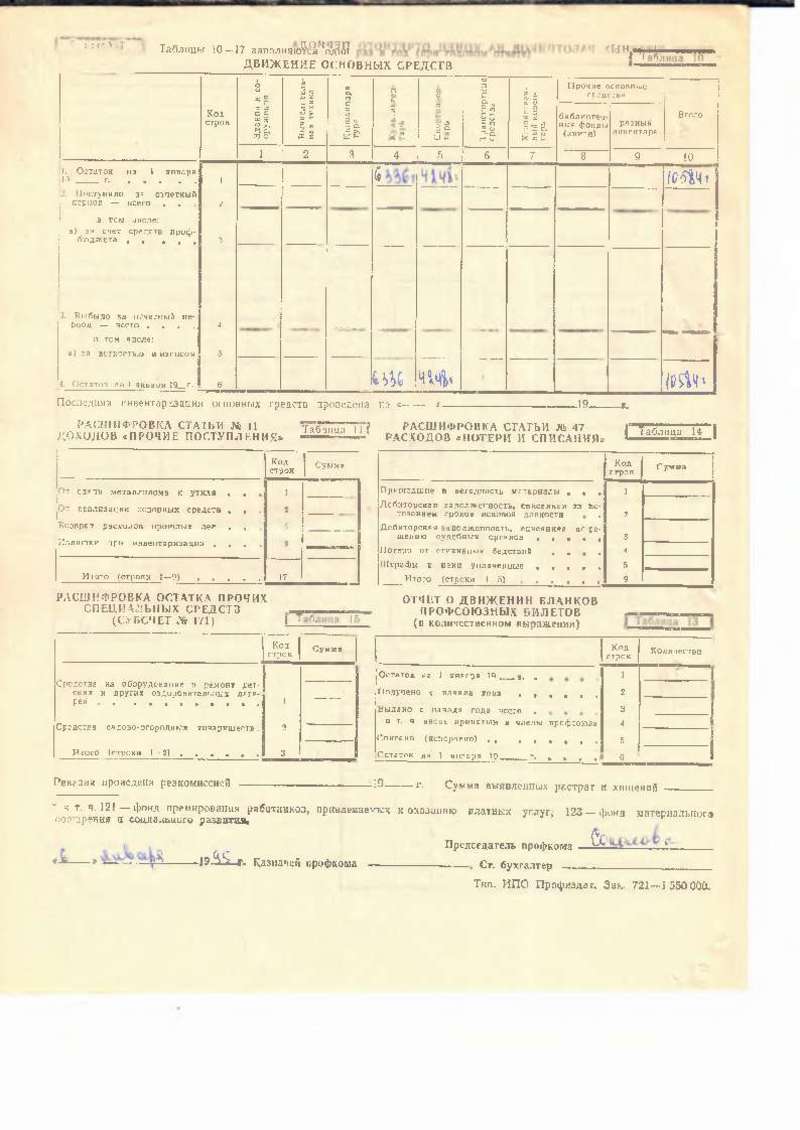 Таблицы 10—17 заполняются один раз в год (при годовом отчете)
Таблица 10
ДВИЖЕНИЕ ОСНОВНЫХ СРЕДСТВ
Код строк
Здания и сооружения
Вычислительная техника
Киноаппаратура
Спортинвентарь
Транспортные средства
Прочие основные средства
библиотечные фонды (книги)
разный инвентарь
Всего
1 2 3 4 5 6 7 8 9 10
1. Остаток на 1 января
19 г. 1 6336 4248 10584
2. Поступило за отчетный
период — всего 2
в том числе:
а) за счет средств профбюджета 3
3. Выбыло за отчетный период — всего 4
в том числе:
5
4. Остаток на 1 января 19 г. 6 6336 4248 10584
Последняя инвентаризация основных средств проведена на « » 19 г.
РАСШИФРОВКА СТАТЬИ № 11
ДОХОДОВ «ПРОЧИЕ ПОСТУПЛЕНИЯ»
Таблица 11
Код строк
Сумма
От сдачи металлолома и утиля 1
От реализации основных средств 2
Возврат расходов прошлых лет
Излишки при инвентаризации
Итого (строки 1—9) 17
РАСШИФРОВКА СТАТЬИ № 47
РАСХОДОВ «ПОТЕРИ И СПИСАНИЯ»
Таблица 14
Код строк
Сумма
Пришедшие в негодность материалы 1
Дебиторская задолженность, списанная за истечением сроков исковой давности 2
Дебиторская задолженность, списанная по решению судебных органов 3
Потери от стихийных бедствий 4
Штрафы и пени уплаченные 5
Итого (строки 1—5)
РАСШИФРОВКА ОСТАТКА ПРОЧИХ
СПЕЦИАЛЬНЫХ СРЕДСТВ
(СУБСЧЕТ № 171)
Таблица 15
Код строк
Сумма
Средства на оборудование и ремонт детских и других оздоровительных лагерей 1
Средства садово-огородных товариществ 2
Итого (строки 1—2) 3
ОТЧЕТ О ДВИЖЕНИИ БЛАНКОВ
ПРОФСОЮЗНЫХ БИЛЕТОВ
(в количественном выражении)
Таблица 13
Код строк
Количество
Остаток на 1 января 19 г. 1
Получено с начала года 2
Выдано с начала года всего 3
в т. ч. вновь принятым в члены профсоюза 4
Списано (испорчено) 5
Остаток на 1 января 19 г. 6
Ревизия проведена ревкомиссией 19 г. Сумма выявленных растрат и хищений
* в т. ч. 121 — фонд премирования работников, привлекаемых к оказанию платных услуг, 123 — фонд материального
поощрения и социального развития.
Председатель профкома Соколова
«6» января 1995 г. Казначей профкома Ст. бухгалтер
Тип. ИПО Профиздат. Зак. 721—1 550 000.